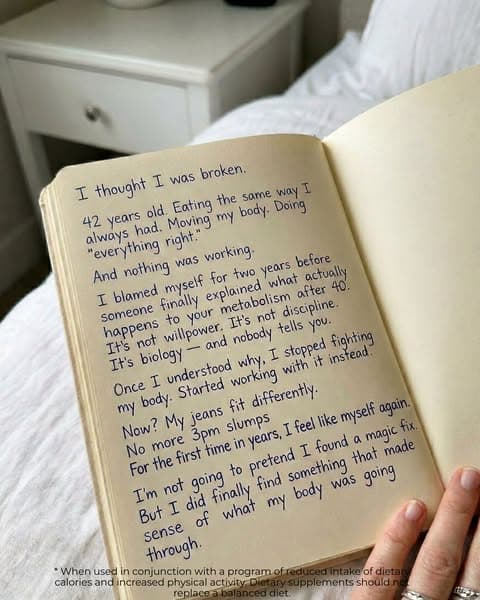 I thought I was broken.
42 years old. Eating the same way I
always had. Moving my body. Doing
"everything right."
And nothing was working.
I blamed myself for two years before
someone finally explained what actually
happens to your metabolism after 40.
It's not willpower. It's not discipline.
It's biology — and nobody tells you.
Once I understood why, I stopped fighting
my body. Started working with it instead.
Now? My jeans fit differently.
No more 3pm slumps
For the first time in years, I feel like myself again.
I'm not going to pretend I found a magic fix.
But I did finally find something that made
sense of what my body was going
through.
* When used in conjunction with a program of reduced intake of dietary
calories and increased physical activity. Dietary supplements should not
replace a balanced diet.